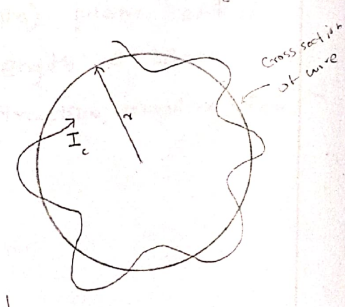 Cross section
of wire
r
I c